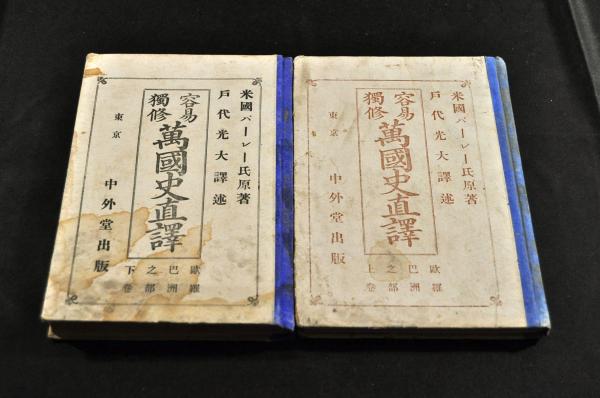 米國パーレー氏原著
戸代光大譯述
容易
獨修
萬國史直譯
歐羅
巴洲
之部
上卷
東京
中外堂出版
米國パーレー氏原著
戸代光大譯述
容易
獨修
萬國史直譯
歐羅
巴洲
之部
下卷
東京
中外堂出版